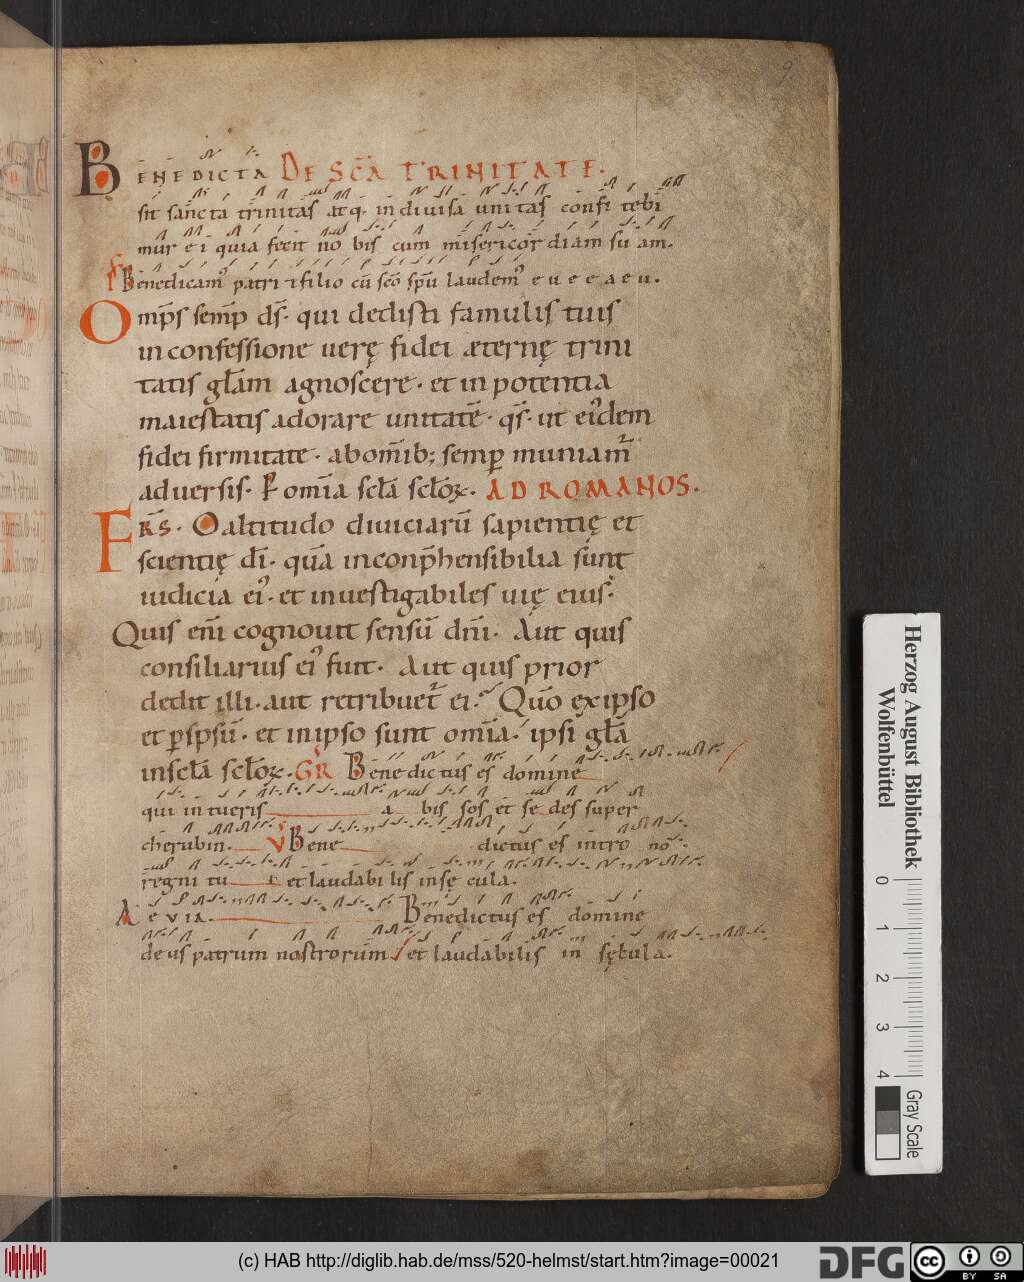 9
BENEDICTA DE SC̄A TRINITATE.
sit sancta trinitas atq; indiuisa unitas confitebi
mur ei quia fecit nobis cum misericordiam suam.
Benedicam᷒ patri ⁊ filio cū sc̄o sp̄u laudem᷒ e u e e a e u.
Omp̄s semp̄ ds̄· qui dedisti famulis tuis
in confessione uerę fidei æternę trini
tatis gl̄am agnoscere· et in potentia
maiestatis adorare unitatē· qs̄· ut ei᷒dem
fidei firmitate· ab om̄ib; semp muniam̄
aduersis. P om̄ia scl̄a scl̄oꝝ. AD ROMANOS.
FRS̄. O altitudo diuiciarū sapientię et
scientię dī· quā inconp̄hensibilia sunt
iudicia ei᷒· et inuestigabiles uię eius.
Quis enī cognouit sensū dn̄i. Aut quis
consiliarius ei᷒ fuit. Aut quis prior
dedit illi· aut retribuet̄ ei. Qūo ex ipso
et p̱ ipsū· et in ipso sunt om̄ia· ipsi gl̄a
in scl̄a scl̄oꝝ. GR Benedictus es domine
qui intueris abissos et sedes super
cherubin. V Bene dictus es in tro no
regni tui et laudabilis in sęcula.
Aevia. Benedictus es domine
deus patrum nostrorum et laudabilis in sęcula.
Herzog August Bibliothek
Wolfenbüttel
0 1 2 3 4
Gray Scale
(c) HAB http://diglib.hab.de/mss/520-helmst/start.htm?image=00021
DFG
cc BY SA